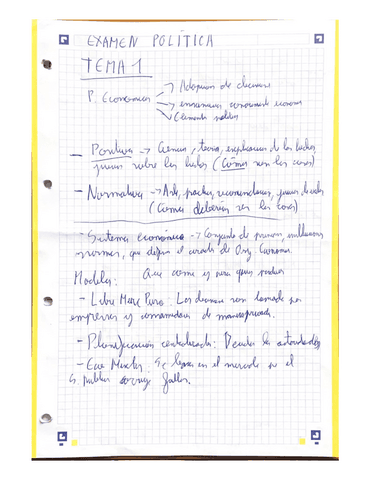 EXAMEN POLÍTICA
TEMA 1
P. Económica → Adopción de decisiones
→ economía
→ Elemento político
- Positiva → Ciencia, teoría, explicación de los hechos
juicios sobre los hechos (Cómo son las cosas)
- Normativa → Arte, práctica, recomendaciones, juicios de valor
(Cómo deberían ser las cosas)
- Sistema económico → Conjunto de
normas, que define el de Org Económica.
Modelos: Que como y para quien producir
- Libre Merc Puro: Las decisiones son tomadas por
empresas y consumidores de manera privada.
- Planificación centralizada: Deciden las autoridades
- Eco Mixta: Se en el mercado
S. público corrige fallos.